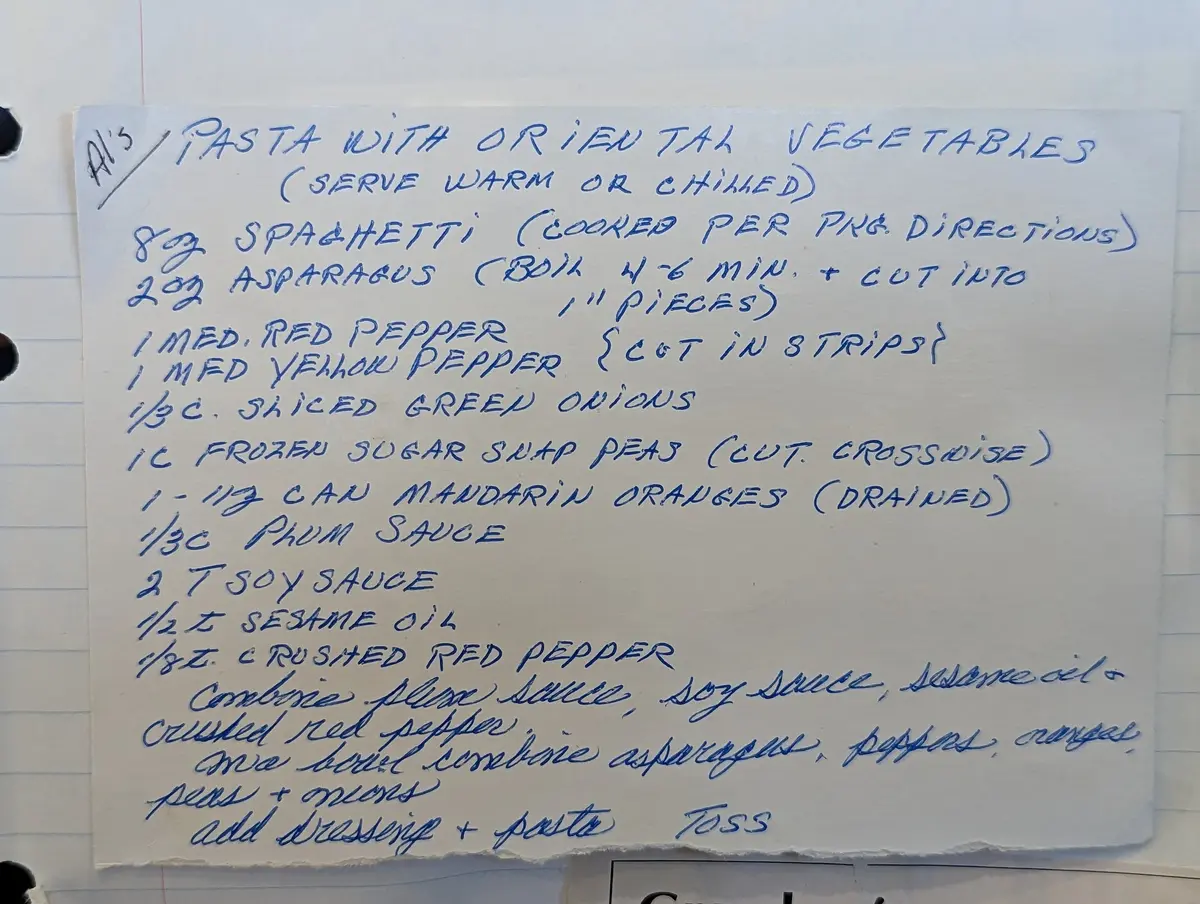 Al's
PASTA WITH ORIENTAL VEGETABLES
(SERVE WARM OR CHILLED)
8oz SPAGHETTI (COOKED PER PKG. DIRECTIONS)
2oz ASPARAGUS (BOIL 4-6 MIN. + CUT INTO
1" PIECES)
1 MED. RED PEPPER
1 MED YELLOW PEPPER {CUT IN STRIPS}
1/3 C. SLICED GREEN ONIONS
1C FROZEN SUGAR SNAP PEAS (CUT. CROSSWISE)
1 - 11z CAN MANDARIN ORANGES (DRAINED)
1/3C PLUM SAUCE
2 T SOY SAUCE
1/2 t SESAME OIL
1/8t. CRUSHED RED PEPPER
Combine plum sauce, soy sauce, sesame oil +
crushed red pepper.
In a bowl combine asparagus, peppers, oranges,
peas + onions
add dressing + pasta TOSS